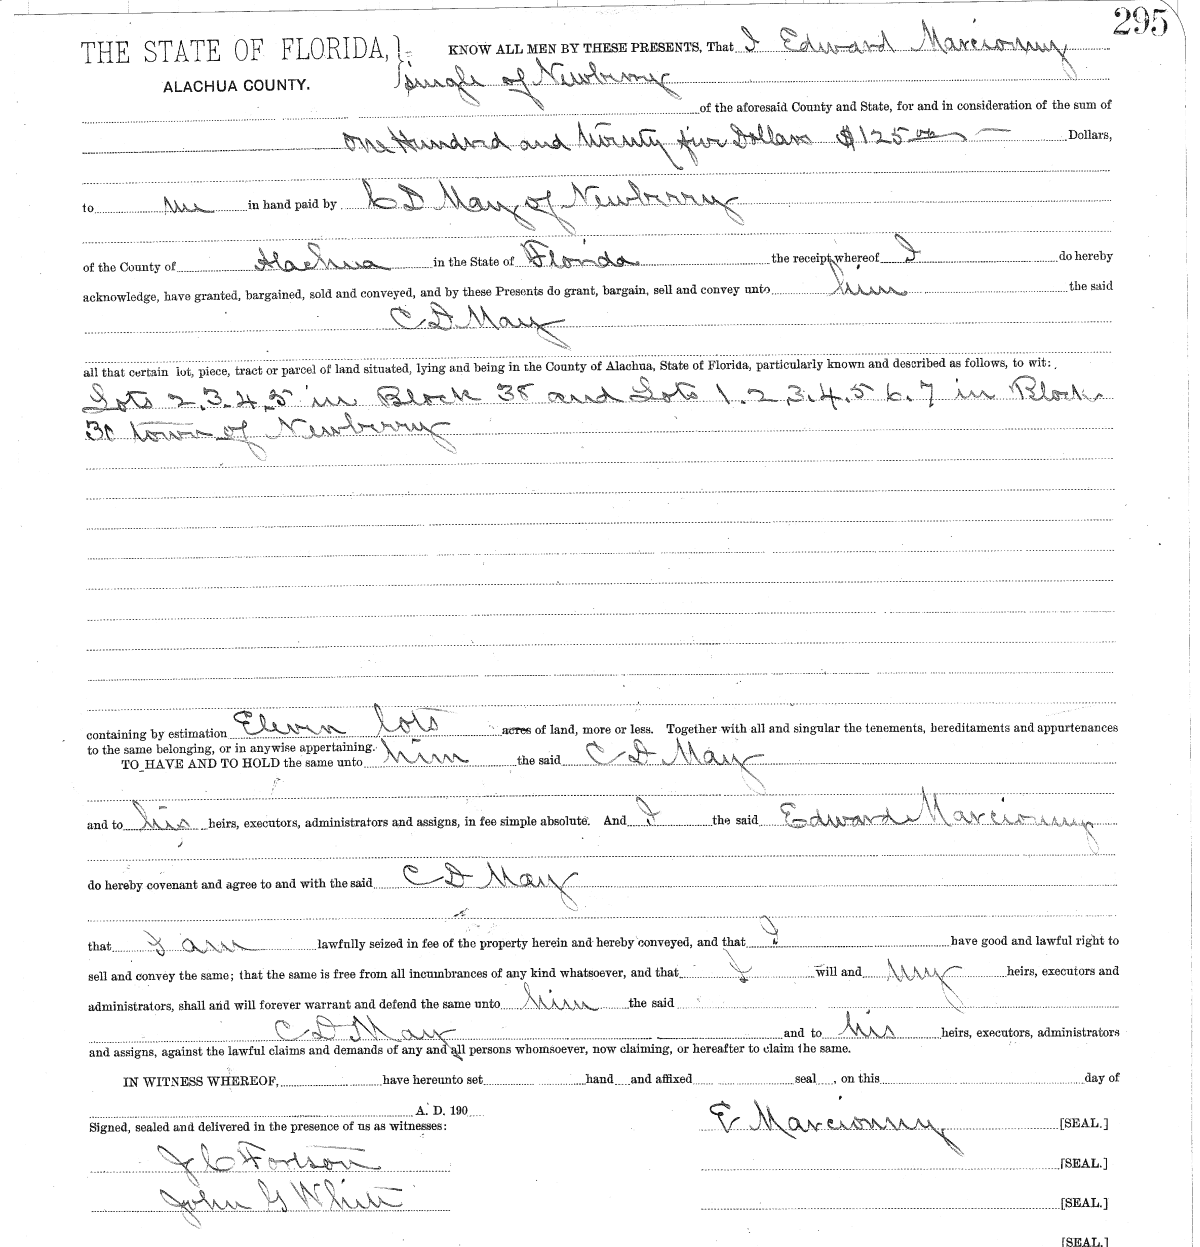 295
THE STATE OF FLORIDA, }- KNOW ALL MEN BY THESE PRESENTS, That I Edward Marcionny
ALACHUA COUNTY. Single of Newberry
of the aforesaid County and State, for and in consideration of the sum of
One Hundred and twenty five Dollars $125 00 Dollars,
to me in hand paid by C D May of Newberry
of the County of Alachua in the State of Florida the receipt whereof I do hereby
acknowledge, have granted, bargained, sold and conveyed, and by these Presents do grant, bargain, sell and convey unto him the said
C D May
all that certain lot, piece, tract or parcel of land situated, lying and being in the County of Alachua, State of Florida, particularly known and described as follows, to wit:
Lots 2.3.4.5 in Block 38 and Lots 1.2.3.4.5 6.7 in Block
town of Newberry
containing by estimation Eleven lots acres of land, more or less. Together with all and singular the tenements, hereditaments and appurtenances
to the same belonging, or in anywise appertaining.
TO HAVE AND TO HOLD the same unto him the said C D May
and to his heirs, executors, administrators and assigns, in fee simple absolute. And I the said Edward Marcionny
do hereby covenant and agree to and with the said C D May
that I am lawfully seized in fee of the property herein and hereby conveyed, and that I have good and lawful right to
sell and convey the same; that the same is free from all incumbrances of any kind whatsoever, and that I will and my heirs, executors and
administrators, shall and will forever warrant and defend the same unto him the said
C D May and to his heirs, executors, administrators
and assigns, against the lawful claims and demands of any and all persons whomsoever, now claiming, or hereafter to claim the same.
IN WITNESS WHEREOF, have hereunto set hand and affixed seal , on this day of
A. D. 190
Signed, sealed and delivered in the presence of us as witnesses: E Marcionny [SEAL.]
J C Fortson [SEAL.]
John G White [SEAL.]
[SEAL.]